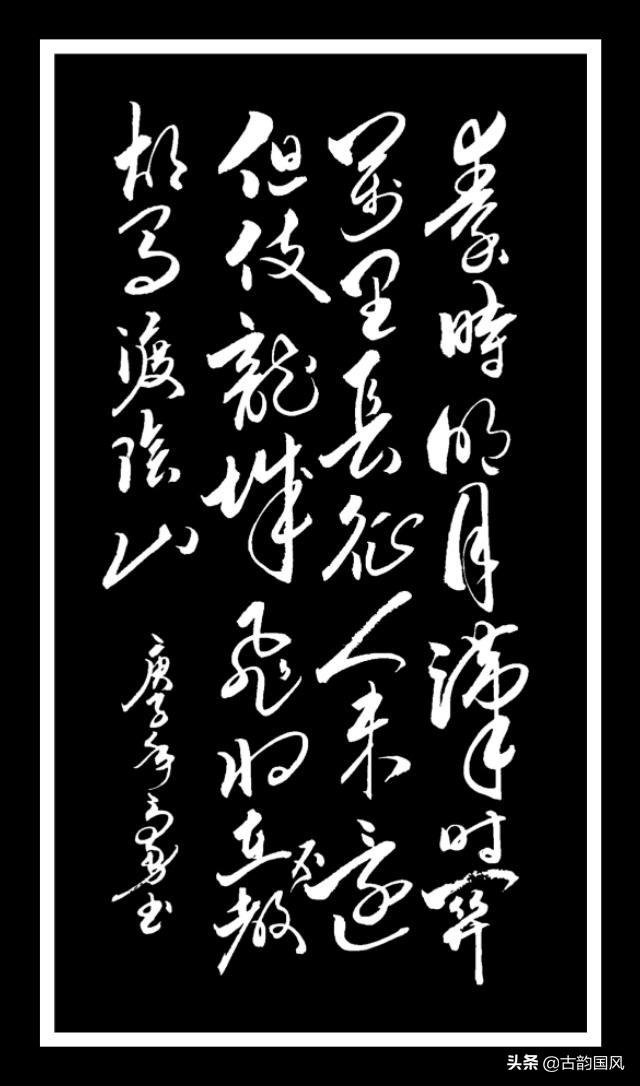 秦時明月漢时關
萬里長征人未還
但使龍城飛将在不教
胡马渡陰山
庚子年高勇书
头条 @古韵国风